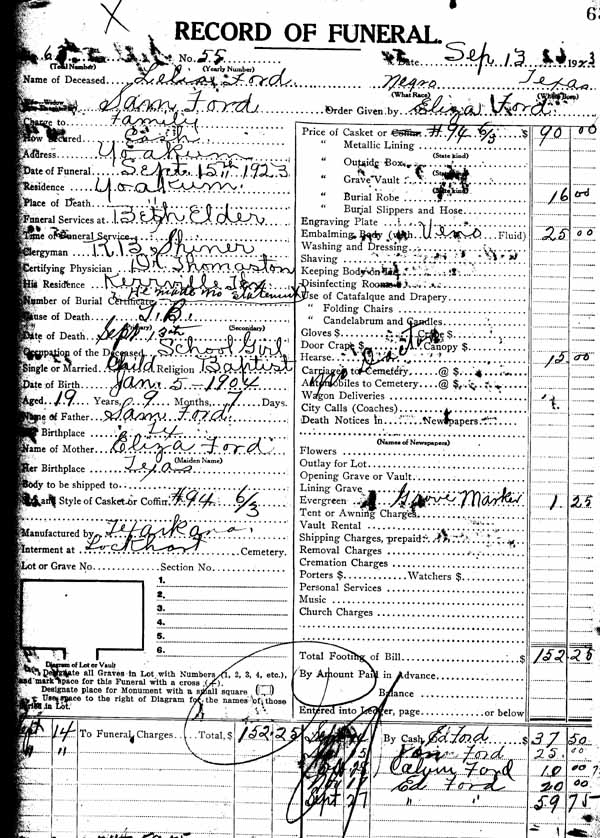 63
RECORD OF FUNERAL.
No. 55 Date Sep 13 1923
(Total Number) (Yearly Number)
Name of Deceased Ford Negro Texas
(What Race) (Where Born)
Sam Ford Order Given by Eliza Ford
Charge to Family
How Secured Cash
Address Yoakum
Date of Funeral Sept. 15th 1923
Residence Yoakum
Place of Death
Funeral Services at Beth Elder
Time of Funeral Service
Clergyman R B Shiner
Certifying Physician Dr Thomaston
His Residence Kerrville Tex
He made no statement
Number of Burial Certificate
Cause of Death T.B.
(Secondary)
Date of Death Sept 13th
Occupation of the Deceased School Girl
Single or Married Child Religion Baptist
Date of Birth Jan. 5 - 1904
Aged 19 Years, 9 Months, 7 Days.
Name of Father Sam Ford
His Birthplace Tx
Name of Mother Eliza Ford
(Maiden Name)
Her Birthplace Texas
Body to be shipped to
Size and Style of Casket or Coffin #94 6/3
Manufactured by Texarkana
Interment at Lockhart Cemetery.
Lot or Grave No. Section No.
1.
2.
3.
4.
5.
6.
Diagram of Lot or Vault
Designate all Graves in Lot with Numbers (1, 2, 3, 4, etc.),
and mark space for this Funeral with a cross (+).
Designate place for Monument with a small square
Use space to the right of Diagram for the names of those
Buried in Lot.
Price of Casket or Coffin #94 6/3 $ 90 00
" Metallic Lining
(State kind)
" Outside Box
" Grave Vault
(State kind)
" Burial Robe 16 00
" Burial Slippers and Hose
Engraving Plate
Embalming Body (with Veno Fluid) 25 00
Washing and Dressing
Shaving
Keeping Body on Ice
Disinfecting Rooms
Use of Catafalque and Drapery
" Folding Chairs
" Candelabrum and Candles
Gloves $ $
Door Crape $ Canopy $
Hearse 15 00
Carriages to Cemetery @ $
Automobiles to Cemetery @ $
Wagon Deliveries
City Calls (Coaches)
Death Notices in Newspapers
(Names of Newspapers)
Flowers
Outlay for Lot
Opening Grave or Vault
Lining Grave
Evergreen Grave Marker 1 25
Tent or Awning Charges
Vault Rental
Shipping Charges, prepaid
Removal Charges
Cremation Charges
Porters $ Watchers $
Personal Services
Music
Church Charges
Total Footing of Bill $ 152 25
By Amount Paid in Advance
Balance
Entered into Ledger, page or below
Sept 14 To Funeral Charges Total, $ 152.25
" "
By Cash Ed Ford $ 37 50
Ford 25 00
Calvin Ford 10 00
Ed Ford 20 00
Sept 27 " " 59 75